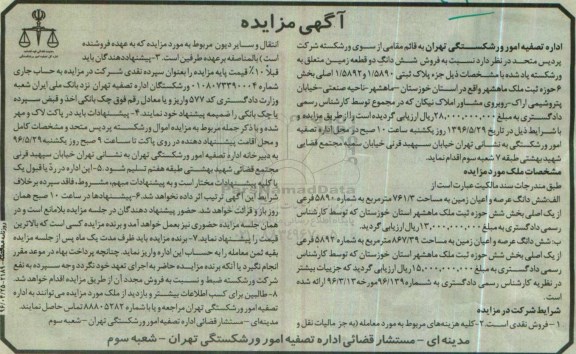 آگهی مزایده
اداره تصفیه امور ورشکستگی تهران به قائم مقامی از سوی ورشکسته شرکت
پردیس متحد در نظر دارد نسبت به فروش شش دانگ دو قطعه زمین متعلق به
ورشکسته یاد شده با مشخصات ذیل جزء پلاک ثبتی ۱/۵۸۹۰ و ۱/۵۸۹۲ اصلی بخش
۶ حوزه ثبت ملک ماهشهر واقع در استان خوزستان - ماهشهر - ناحیه صنعتی - خیابان
پتروشیمی اراک - روبروی مشاور املاک نیکان که در مجموع توسط کارشناس رسمی
دادگستری به مبلغ ۲۸,۰۰۰,۰۰۰,۰۰۰ ریال ارزیابی گردیده است را از طریق مزایده و
با شرایط ذیل در تاریخ ۱۳۹۶/۵/۲۹ روز یکشنبه ساعت ۱۰ صبح در محل اداره تصفیه
امور ورشکستگی به نشانی تهران خیابان سپهبد قرنی خیابان سمیه مجتمع قضایی
شهید بهشتی طبقه ۷ شعبه سوم اقدام نماید.
مشخصات ملک مورد مزایده
طبق مندرجات سند مالکیت عبارت است از
الف: شش دانگ عرصه و اعیان زمین به مساحت ۷۶۱/۳ مترمربع به شماره ۵۸۹۰ فرعی
از یک اصلی بخش شش حوزه ثبت ملک ماهشهر استان خوزستان که توسط کارشناس
رسمی دادگستری به مبلغ ۱۳,۰۰۰,۰۰۰,۰۰۰ ریال ارزیابی گردید.
ب: شش دانگ عرصه و اعیان زمین به مساحت ۸۶۷/۳۹ مترمربع به شماره ۵۸۹۲ فرعی
از یک اصلی بخش شش حوزه ثبت ملک ماهشهر استان خوزستان که توسط کارشناس
رسمی دادگستری به مبلغ ۱۵,۰۰۰,۰۰۰,۰۰۰ ریال ارزیابی گردید که جزییات بیشتر
در نظریه کارشناس رسمی دادگستری به شماره ۹۶/۱۳۹ مورخه ۹۶/۳/۱۲ ارائه شده
است.
شرایط شرکت در مزایده
۱- فروش نقدی است. ۲- کلیه هزینه‌های مربوط به مورد معامله (به جز مالیات نقل و
انتقال و سایر دیون مربوط به مورد مزایده که به عهده فروشنده
است) بالمناصفه بر عهده طرفین است. ۳- پیشنهاددهندگان باید
قبلاً ۱۰٪ قیمت پایه مزایده را بعنوان سپرده نقدی شرکت در مزایده به حساب جاری
شماره ورشکستگان اداره تصفیه تهران نزد بانک ملی ایران شعبه
وزارت دادگستری کد ۵۷۷ واریز و یا معادل رقم فوق چک بانکی اخذ و قبض سپرده
یا چک بانکی را ضمیمه پیشنهاد خود نمایند. ۴- پیشنهادات باید در پاکت لاک و مهر
شده و با ذکر جمله مربوط به مزایده اموال ورشکسته پردیس متحد و مشخصات کامل
و محل اقامت پیشنهاد دهنده در روی پاکت تا ساعت ۹ صبح روز یکشنبه ۹۶/۵/۲۹
به دبیرخانه اداره تصفیه امور ورشکستگی تهران به نشانی تهران خیابان سپهبد قرنی
مجتمع قضائی شهید بهشتی طبقه هفتم تسلیم شود. ۵- این اداره در رد یا قبول یک
یا کلیه پیشنهادات مختار است و به پیشنهادات مبهم، مشروط، فاقد سپرده بر خلاف
شرایط این آگهی ترتیب اثر داده نخواهد شد. ۶- پیشنهادها در ساعت ۱۰ صبح همان
روز باز و قرائت خواهد شد. حضور پیشنهاد دهندگان در جلسه مزایده بلامانع است و در
همان جلسه مزایده حضوری نیز بعمل خواهد آمد و برنده مزایده کسی است که بالاترین
قیمت را پیشنهاد نماید. ۷- برنده مزایده باید ظرف مدت یک ماه پس از جلسه مزایده
بقیه ثمن معامله را به حساب این اداره واریز نماید. چنانچه پرداخت بهاء در موعد مقرر
انجام نگیرد یا آنکه برنده مزایده حاضر به اجرای تعهد خود نگردد وجه سپرده به نفع
شرکت ورشکسته ضبط و نسبت به فروش مجدد آن از طریق مزایده اقدام خواهد شد.
۸- طالبین برای کسب اطلاعات بیشتر و بازدید از ملک مورد مزایده می‌توانند به اداره
تصفیه امور ورشکستگی تهران مراجعه و یا با شماره ۸۸۸۰۵۲۸۲ تماس حاصل نمایند.
مدینه‌ای - مستشار قضائی اداره تصفیه امور ورشکستگی تهران - شعبه سوم
مدینه ای - مستشار قضائی اداره تصفیه امور ورشکستگی تهران - شعبه سوم